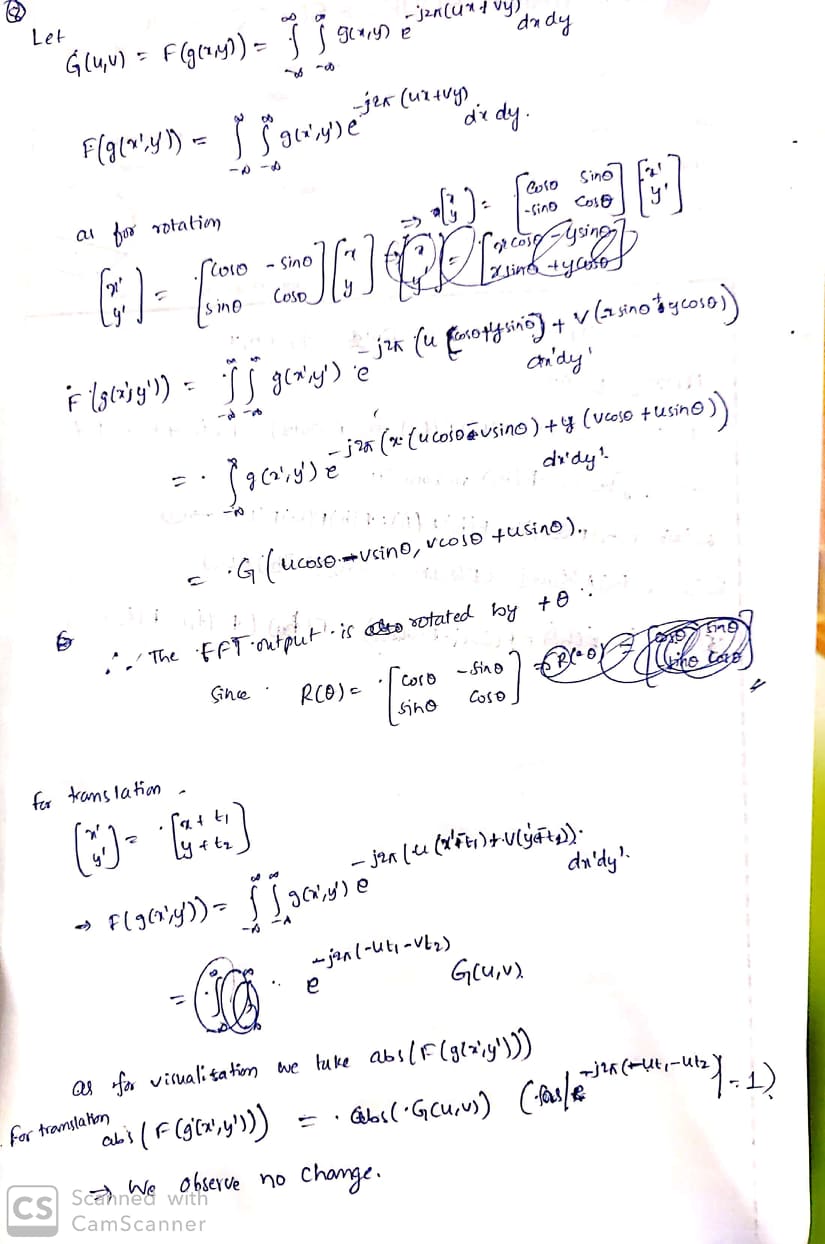 ②
Let
G(u,v) = F(g(x,y)) = ∫_{-∞}^{∞} ∫_{-∞}^{∞} g(x,y) e^{-j2π(ux+vy)} dx dy
F(g(x',y')) = ∫_{-∞}^{∞} ∫_{-∞}^{∞} g(x',y') e^{-j2π(ux+vy)} dx dy.
as for rotation
[x' y'] = [cosθ -sinθ; sinθ cosθ] [x y] ⇒ [x y] = [cosθ sinθ; -sinθ cosθ] [x' y']
F(g(x',y')) = ∫_{-∞}^{∞} ∫_{-∞}^{∞} g(x',y') e^{-j2π(u [xcosθ+ysinθ] + v(-xsinθ+ycosθ))} dx'dy'
= ∫_{-∞}^{∞} g(x',y') e^{-j2π(x(ucosθ-vsinθ)+y(vcosθ+usinθ))} dx'dy'
= G(ucosθ-vsinθ, vcosθ+usinθ).
∴ The FFT output is rotated by +θ
Since R(θ) = [cosθ -sinθ; sinθ cosθ]
for translation
[x' y'] = [x+t1 y+t2]
⇒ F(g(x',y')) = ∫_{-∞}^{∞} ∫_{-∞}^{∞} g(x',y') e^{-j2π(u(x'-t1)+v(y'-t2))} dx'dy'
= e^{-j2π(-ut1-vt2)} G(u,v).
as for visualisation we take abs(F(g(x',y')))
For translation
abs(F(g(x',y'))) = abs(G(u,v)) (as |e^{-j2π(-ut1-ut2)}| = 1)
⇒ We observe no change.
CS Scanned with
CamScanner